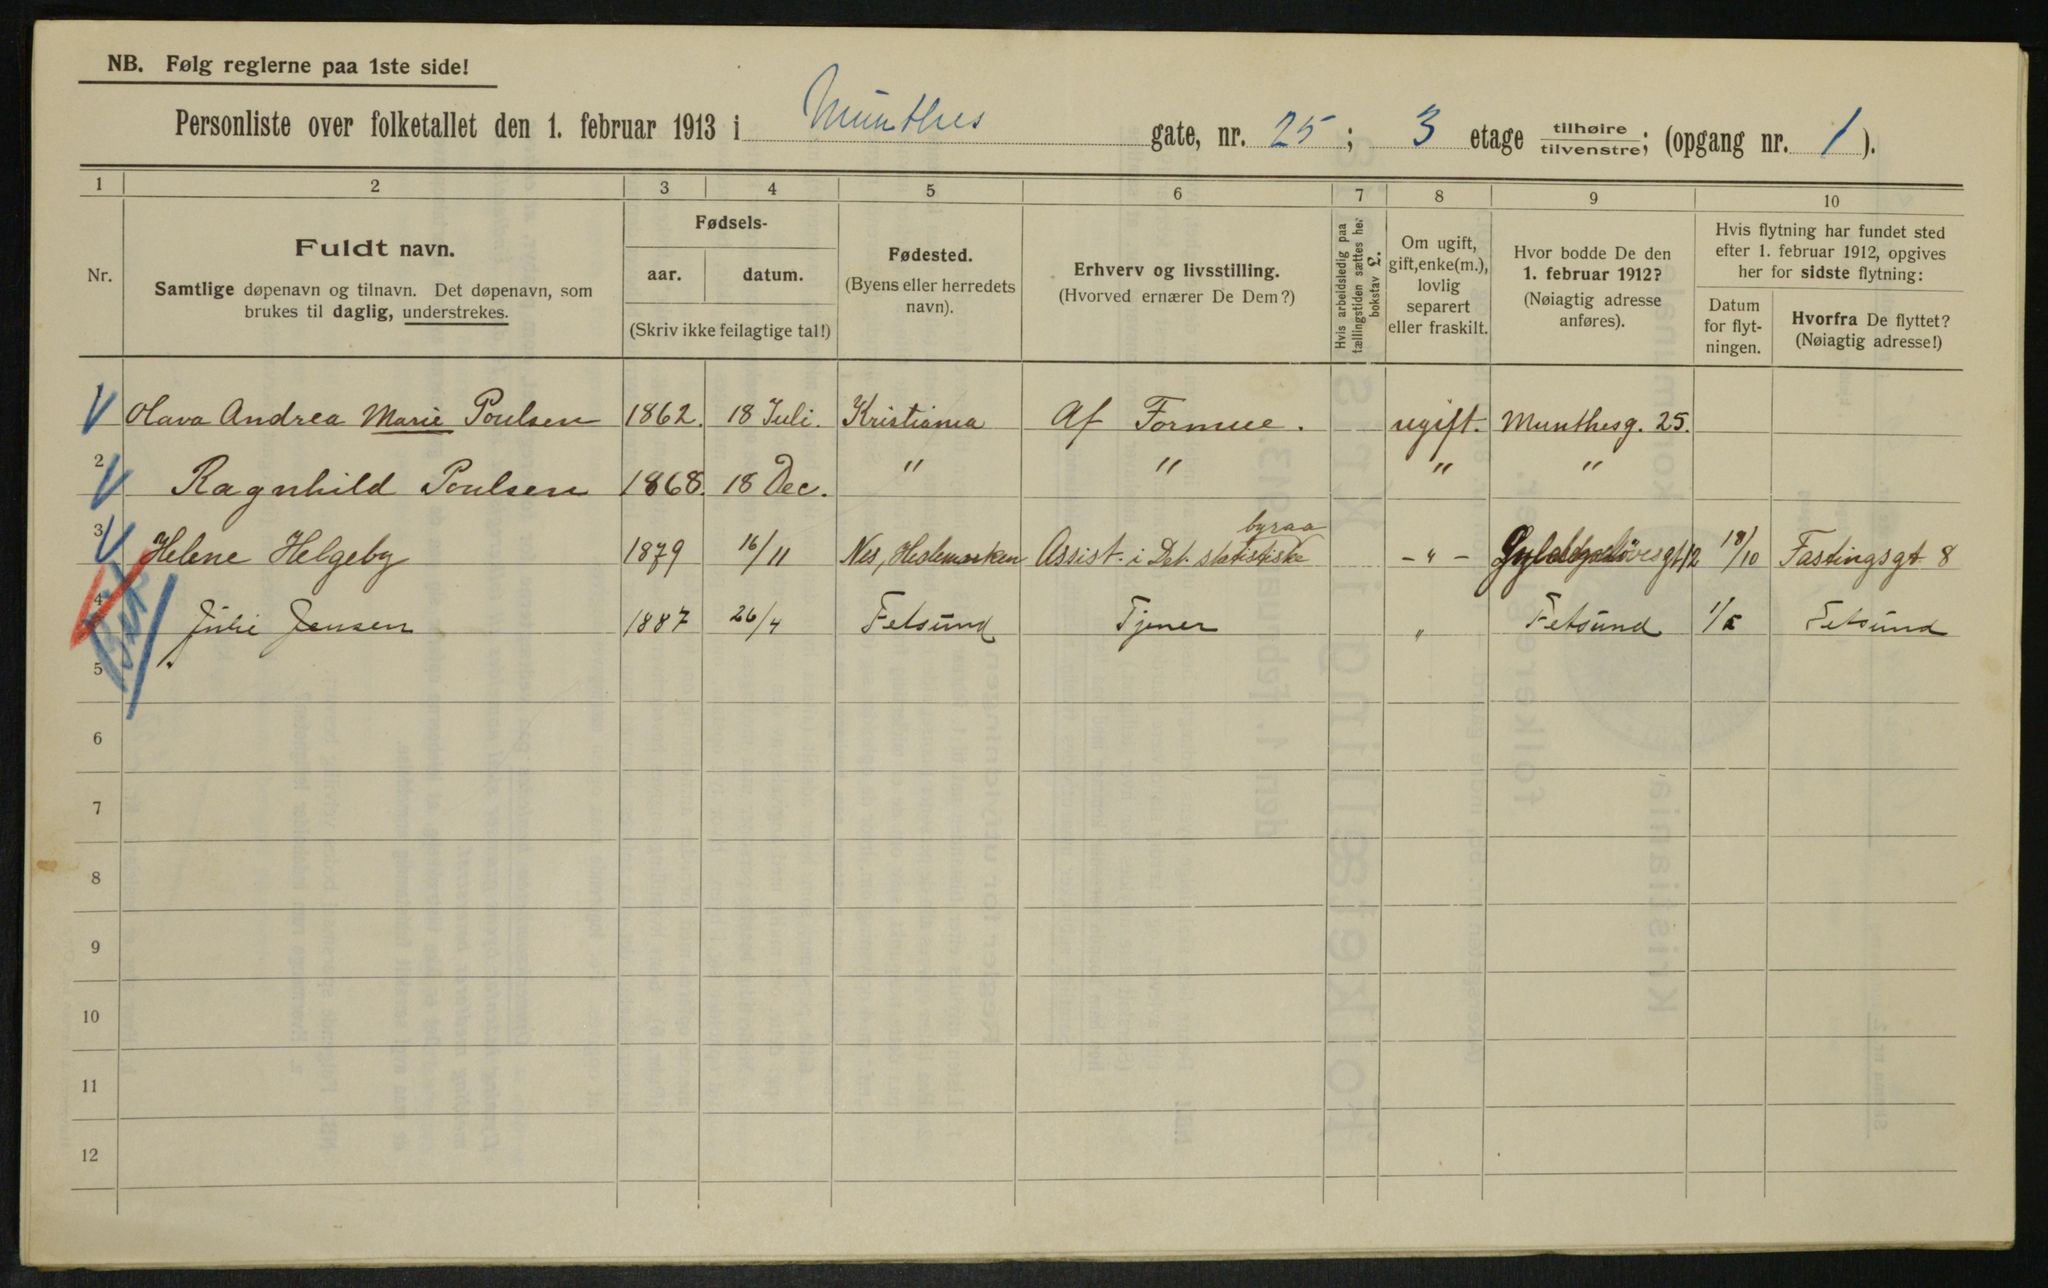 NB. Følg reglerne paa 1ste side!
Personliste over folketallet den 1. februar 1913 i Munthes gate, nr. 25; 3 etage tilhøire/tilvenstre; (opgang nr. 1).
1 2 3 4 5 6 7 8 9 10
Nr.
Fuldt navn.
Samtlige døpenavn og tilnavn. Det døpenavn, som
brukes til daglig, understrekes.
Fødsels-
aar. datum.
(Skriv ikke feilagtige tal!)
Fødested.
(Byens eller herredets
navn).
Erhverv og livsstilling.
(Hvorved ernærer De Dem?)
Hvis arbeidsledig paa
tællingstiden sættes her
bokstav L.
Om ugift,
gift, enke(m.),
lovlig
separert
eller fraskilt.
Hvor bodde De den
1. februar 1912?
(Nøiagtig adresse
anføres).
Hvis flytning har fundet sted
efter 1. februar 1912, opgives
her for sidste flytning:
Datum
for flyt-
ningen.
Hvorfra De flyttet?
(Nøiagtig adresse!)
Olava Andrea Marie Poulsen 1862. 18 Juli. Kristiania Af Formue. ugift. Munthesg. 25.
2 Ragnhild Poulsen 1868. 18 Dec. " " " "
3 Helene Helgeby 1879 16/11 Nes, Hedemarken Assist. i Det statistiske byraa - " - 12 18/10 Fastingsgt 8
4 Julie Jensen 1887 26/4 Fetsund Tjener " Fetsund Fetsund
5
6
7
8
9
10
11
12